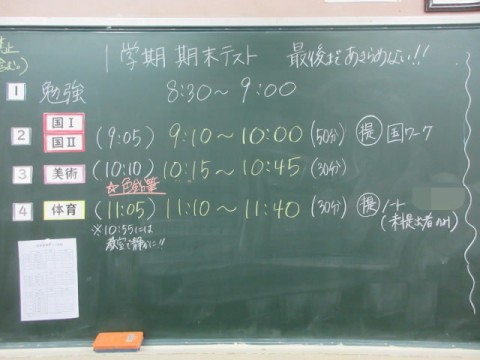 1学期 期末テスト 最後まであきらめない!!
1 勉強 8:30〜9:00
2 国Ⅰ 国Ⅱ (9:05) 9:10〜10:00 (50分) 提 国ワーク
3 美術 (10:10) 10:15〜10:45 (30分)
☆色鉛筆
4 体育 (11:05) 11:10〜11:40 (30分) 提 ノート
(未提出者のみ)
※10:55には
教室で静かに!!